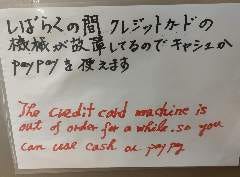 しばらくの間 クレジットカードの
機械が故障してるのでキャッシュか
paypayを使えます
The credit card machine is
out of order for a while. so you
can use cash or paypay